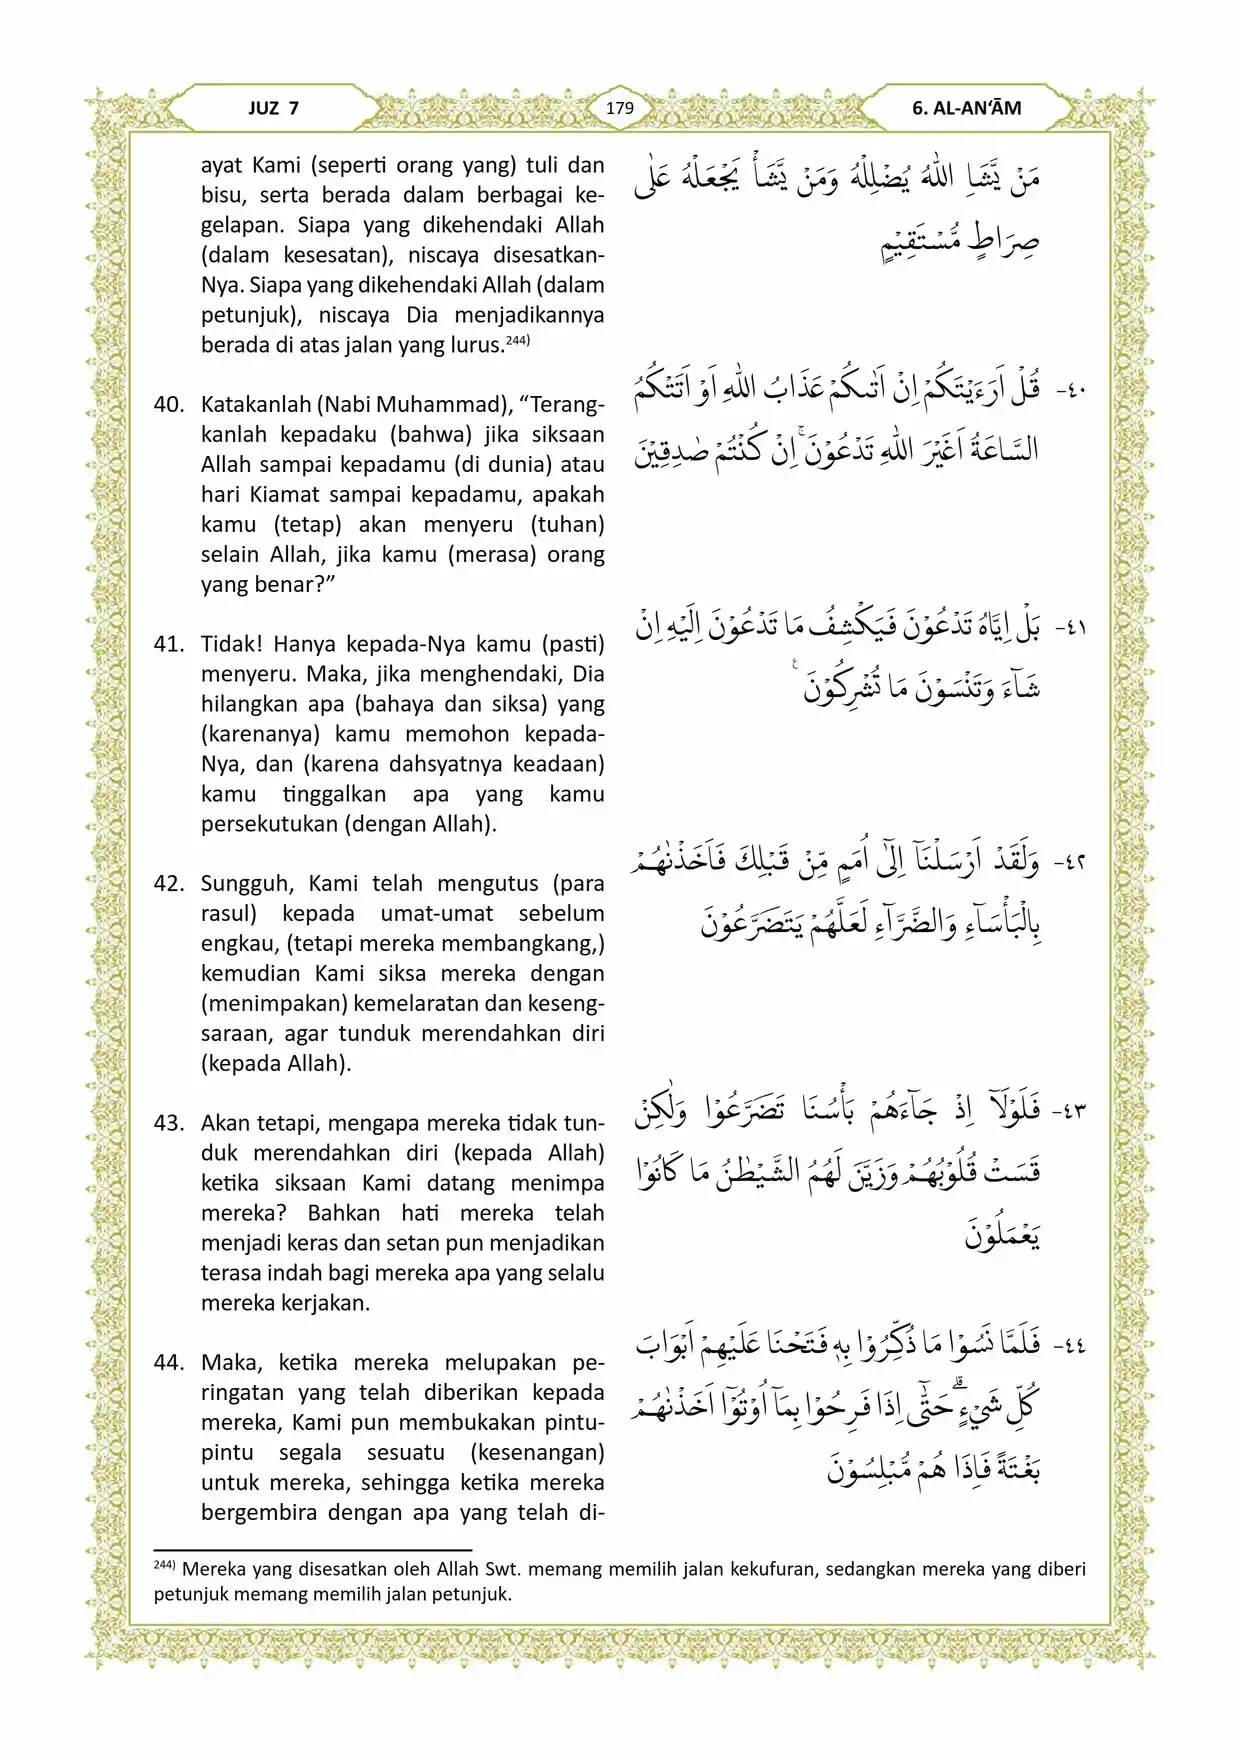 JUZ 7
179
6. AL-AN‘ĀM
ayat Kami (seperti orang yang) tuli dan
bisu, serta berada dalam berbagai ke-
gelapan. Siapa yang dikehendaki Allah
(dalam kesesatan), niscaya disesatkan-
Nya. Siapa yang dikehendaki Allah (dalam
petunjuk), niscaya Dia menjadikannya
berada di atas jalan yang lurus.²⁴⁴⁾
مَنْ يَّشَاِ اللّٰهُ يُضْلِلْهُ وَمَنْ يَّشَأْ يَجْعَلْهُ عَلٰى
صِرَاطٍ مُّسْتَقِيْمٍ
40. Katakanlah (Nabi Muhammad), “Terang-
kanlah kepadaku (bahwa) jika siksaan
Allah sampai kepadamu (di dunia) atau
hari Kiamat sampai kepadamu, apakah
kamu (tetap) akan menyeru (tuhan)
selain Allah, jika kamu (merasa) orang
yang benar?”
٤٠- قُلْ اَرَءَيْتَكُمْ اِنْ اَتٰىكُمْ عَذَابُ اللّٰهِ اَوْ اَتَتْكُمُ
السَّاعَةُ اَغَيْرَ اللّٰهِ تَدْعُوْنَۚ اِنْ كُنْتُمْ صٰدِقِيْنَ
41. Tidak! Hanya kepada-Nya kamu (pasti)
menyeru. Maka, jika menghendaki, Dia
hilangkan apa (bahaya dan siksa) yang
(karenanya) kamu memohon kepada-
Nya, dan (karena dahsyatnya keadaan)
kamu tinggalkan apa yang kamu
persekutukan (dengan Allah).
٤١- بَلْ اِيَّاهُ تَدْعُوْنَ فَيَكْشِفُ مَا تَدْعُوْنَ اِلَيْهِ اِنْ
شَاۤءَ وَتَنْسَوْنَ مَا تُشْرِكُوْنَ ࣖ
42. Sungguh, Kami telah mengutus (para
rasul) kepada umat-umat sebelum
engkau, (tetapi mereka membangkang,)
kemudian Kami siksa mereka dengan
(menimpakan) kemelaratan dan keseng-
saraan, agar tunduk merendahkan diri
(kepada Allah).
٤٢- وَلَقَدْ اَرْسَلْنَآ اِلٰٓى اُمَمٍ مِّنْ قَبْلِكَ فَاَخَذْنٰهُمْ
بِالْبَأْسَاۤءِ وَالضَّرَّاۤءِ لَعَلَّهُمْ يَتَضَرَّعُوْنَ
43. Akan tetapi, mengapa mereka tidak tun-
duk merendahkan diri (kepada Allah)
ketika siksaan Kami datang menimpa
mereka? Bahkan hati mereka telah
menjadi keras dan setan pun menjadikan
terasa indah bagi mereka apa yang selalu
mereka kerjakan.
٤٣- فَلَوْلَآ اِذْ جَاۤءَهُمْ بَأْسُنَا تَضَرَّعُوْا وَلٰكِنْ
قَسَتْ قُلُوْبُهُمْ وَزَيَّنَ لَهُمُ الشَّيْطٰنُ مَا كَانُوْا
يَعْمَلُوْنَ
44. Maka, ketika mereka melupakan pe-
ringatan yang telah diberikan kepada
mereka, Kami pun membukakan pintu-
pintu segala sesuatu (kesenangan)
untuk mereka, sehingga ketika mereka
bergembira dengan apa yang telah di-
٤٤- فَلَمَّا نَسُوْا مَا ذُكِّرُوْا بِهٖ فَتَحْنَا عَلَيْهِمْ اَبْوَابَ
كُلِّ شَيْءٍۗ حَتّٰٓى اِذَا فَرِحُوْا بِمَآ اُوْتُوْٓا اَخَذْنٰهُمْ
بَغْتَةً فَاِذَا هُمْ مُّبْلِسُوْنَ
²⁴⁴⁾ Mereka yang disesatkan oleh Allah Swt. memang memilih jalan kekufuran, sedangkan mereka yang diberi
petunjuk memang memilih jalan petunjuk.